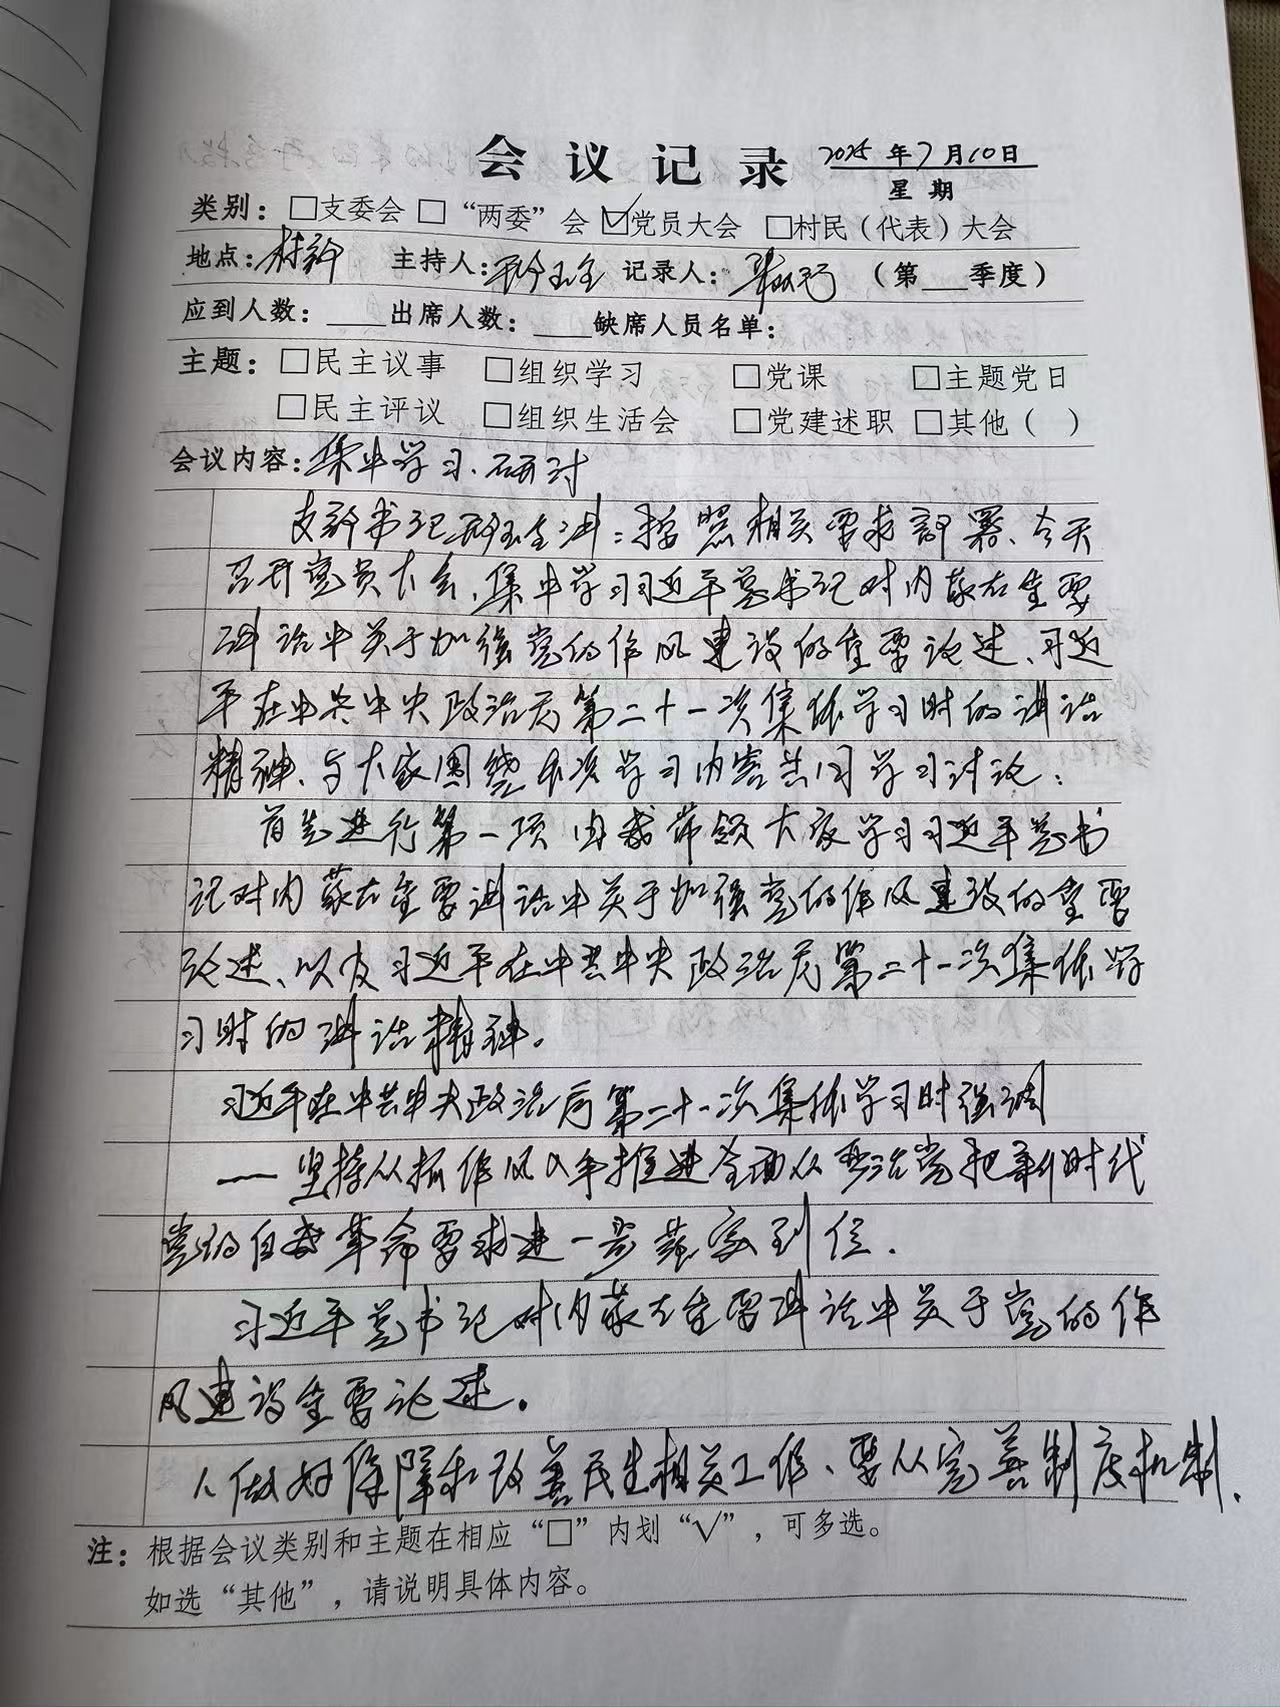 会议记录 2025年7月10日
星期
类别：□支委会 □“两委”会 ☑党员大会 □村民（代表）大会
地点：村部 主持人： 记录人： （第___季度）
应到人数：____出席人数：____缺席人员名单：
主题：□民主议事 □组织学习 □党课 □主题党日
□民主评议 □组织生活会 □党建述职 □其他（ ）
会议内容：集中学习、研讨
支部书记讲：按照相关要求部署、今天
召开党员大会、集中学习习近平总书记对内蒙古重要
讲话中关于加强党的作风建设的重要论述、习近
平在中共中央政治局第二十一次集体学习时的讲话
精神、与大家围绕本次学习内容共同学习讨论：
首先进行第一项 由我带领大家学习习近平总书
记对内蒙古重要讲话中关于加强党的作风建设的重要
论述、以及习近平在中共中央政治局第二十一次集体学
习时的讲话精神。
习近平在中共中央政治局第二十一次集体学习时强调
一坚持从抓作风入手推进全面从严治党把新时代
党的自我革命要求进一步落实到位.
习近平总书记对内蒙古重要讲话中关于党的作
风建设重要论述。
1、做好保障和改善民生相关工作、要从完善制度机制.
注：根据会议类别和主题在相应“□”内划“√”，可多选。
如选“其他”，请说明具体内容。